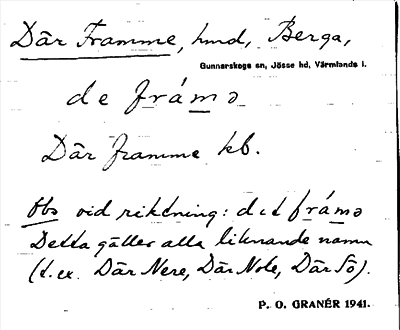 Där Framme, hmd, Berga,
Gunnarskogs sn, Jösse hd, Värmlands l.
de frámə
Där framme kb.
Obs vid riktning: dit frámə
Detta gäller alla liknande namn
(t.ex. Där Nere, Där Nole, Där Sö).
P. O. GRANÉR 1941.